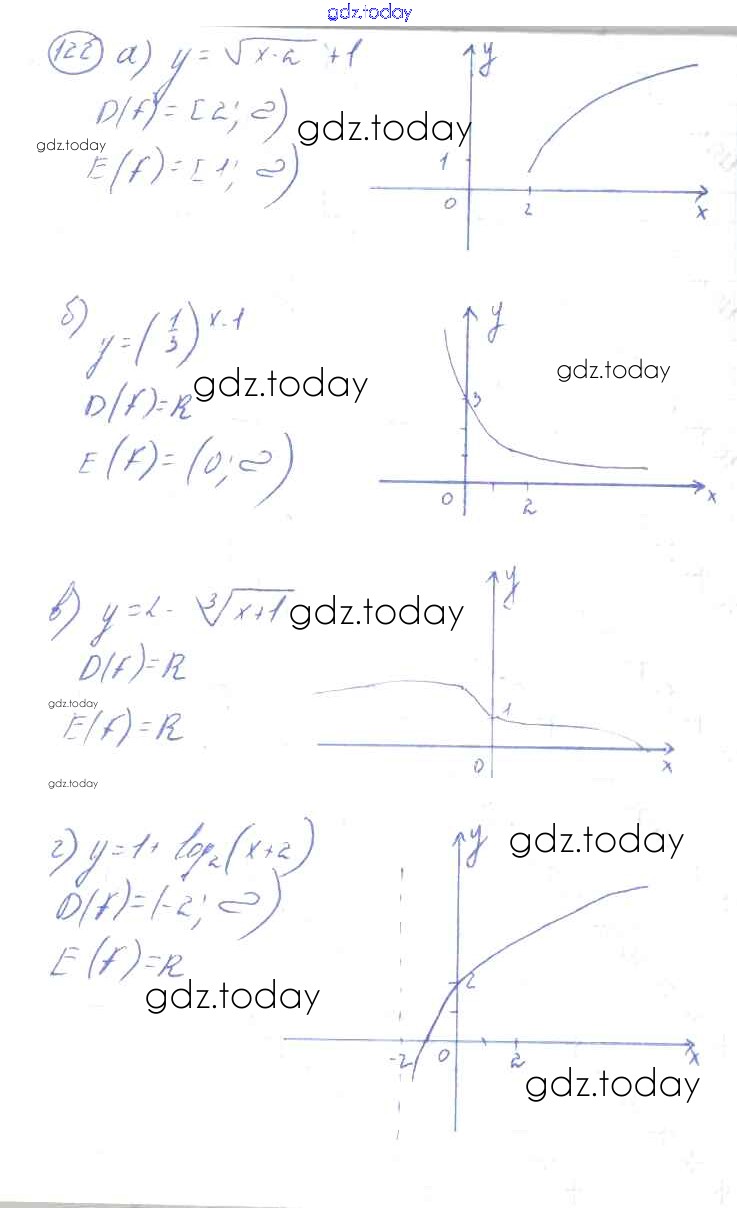 gdz.today
122 а) y = √(x-2) + 1
D(f) = [2; ∞)
gdz.today
gdz.today
E(f) = [1; ∞)
y
1
0 2 x
б) y = (1/3)^(x-1)
gdz.today
gdz.today
D(f) = R
E(f) = (0; ∞)
y
3
0 2 x
в) y = 2 - ∛(x+1)
gdz.today
D(f) = R
gdz.today
E(f) = R
y
1
0 x
gdz.today
г) y = 1 + log₂(x+2)
gdz.today
D(f) = (-2; ∞)
E(f) = R
gdz.today
y
2
-2 0 2 x
gdz.today